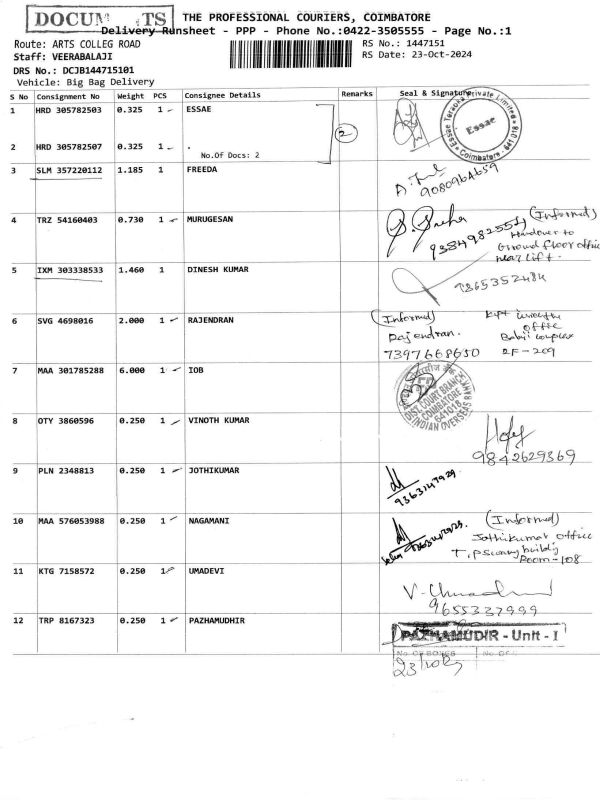 DOCUM TS
THE PROFESSIONAL COURIERS, COIMBATORE
Delivery Runsheet - PPP - Phone No.:0422-3505555 - Page No.:1
Route: ARTS COLLEG ROAD
RS No.: 1447151
Staff: VEERABALAJI
RS Date: 23-Oct-2024
DRS No.: DCJB144715101
Vehicle: Big Bag Delivery
S No Consignment No Weight PCS Consignee Details Remarks Seal & Signature
1 HRD 305782503 0.325 1 ESSAE
Essae Teraoka Private Limited
Essae
Coimbatore - 641 018
2
2 HRD 305782507 0.325 1 .
No.Of Docs: 2
3 SLM 357220112 1.185 1 FREEDA
9080964659
4 TRZ 54160403 0.730 1 MURUGESAN
(Informed)
9384982551
Handover to
Ground floor office
near Lift.
5 IXM 303338533 1.460 1 DINESH KUMAR
7865352484
6 SVG 4698016 2.000 1 RAJENDRAN
(Informed)
Rajendran.
7397668650
office
complex
2F-209
7 MAA 301785288 6.000 1 IOB
DIST. COURT BRANCH
COIMBATORE
641018
INDIAN OVERSEAS BANK
8 OTY 3860596 0.250 1 VINOTH KUMAR
9842629369
9 PLN 2348813 0.250 1 JOTHIKUMAR
9363147929
10 MAA 576053988 0.250 1 NAGAMANI
(Informed)
Jothikumar office
building
Room-108
11 KTG 7158572 0.250 1 UMADEVI
9655337999
12 TRP 8167323 0.250 1 PAZHAMUDHIR
PAZHAMUDIR - Unit - I
No OF BOXES